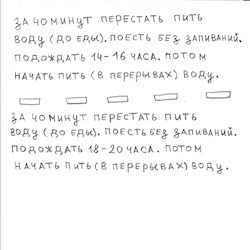 ЗА 40 МИНУТ ПЕРЕСТАТЬ ПИТЬ
ВОДУ (ДО ЕДЫ). ПОЕСТЬ БЕЗ ЗАПИВАНИЙ.
ПОДОЖДАТЬ 14-16 ЧАСА. ПОТОМ
НАЧАТЬ ПИТЬ (В ПЕРЕРЫВАХ) ВОДУ.
ЗА 40 МИНУТ ПЕРЕСТАТЬ ПИТЬ
ВОДУ (ДО ЕДЫ). ПОЕСТЬ БЕЗ ЗАПИВАНИЙ.
ПОДОЖДАТЬ 18-20 ЧАСА. ПОТОМ
НАЧАТЬ ПИТЬ (В ПЕРЕРЫВАХ) ВОДУ.